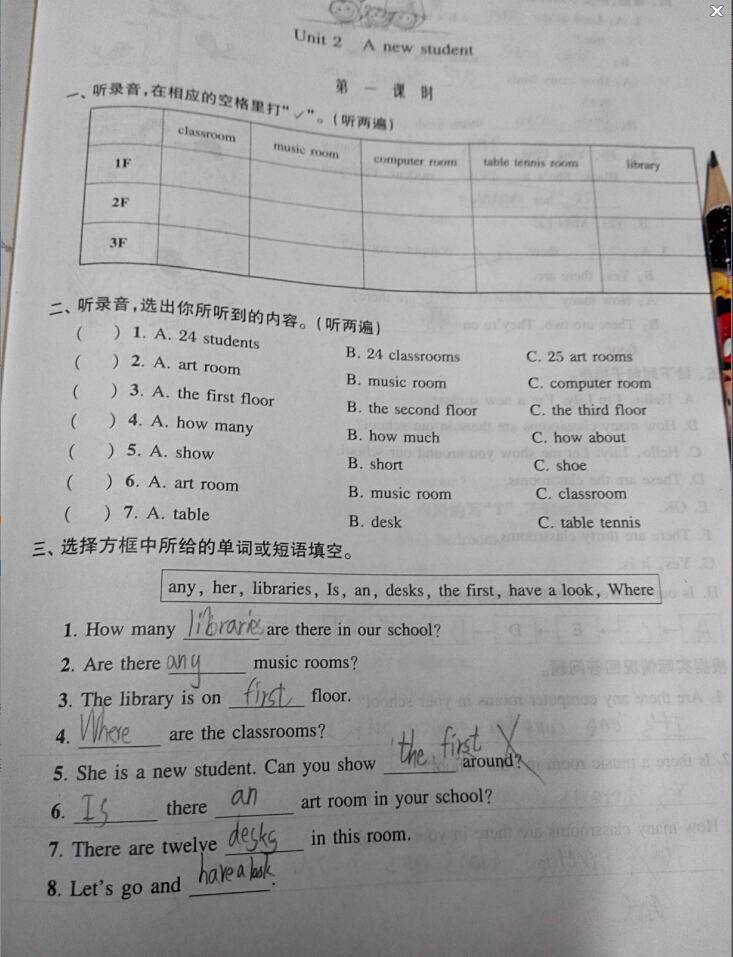 Unit 2 A new student
第 一 课 时
一、听录音,在相应的空格里打“✓”。(听两遍)
classroom music room computer room table tennis room library
1F
2F
3F
二、听录音,选出你所听到的内容。(听两遍)
( ) 1. A. 24 students B. 24 classrooms C. 25 art rooms
( ) 2. A. art room B. music room C. computer room
( ) 3. A. the first floor B. the second floor C. the third floor
( ) 4. A. how many B. how much C. how about
( ) 5. A. show B. short C. shoe
( ) 6. A. art room B. music room C. classroom
( ) 7. A. table B. desk C. table tennis
三、选择方框中所给的单词或短语填空。
any, her, libraries, Is, an, desks, the first, have a look, Where
1. How many libraries are there in our school?
2. Are there any music rooms?
3. The library is on first floor.
4. Where are the classrooms?
5. She is a new student. Can you show the first around?
6. Is there an art room in your school?
7. There are twelve desks in this room.
8. Let's go and have a look.